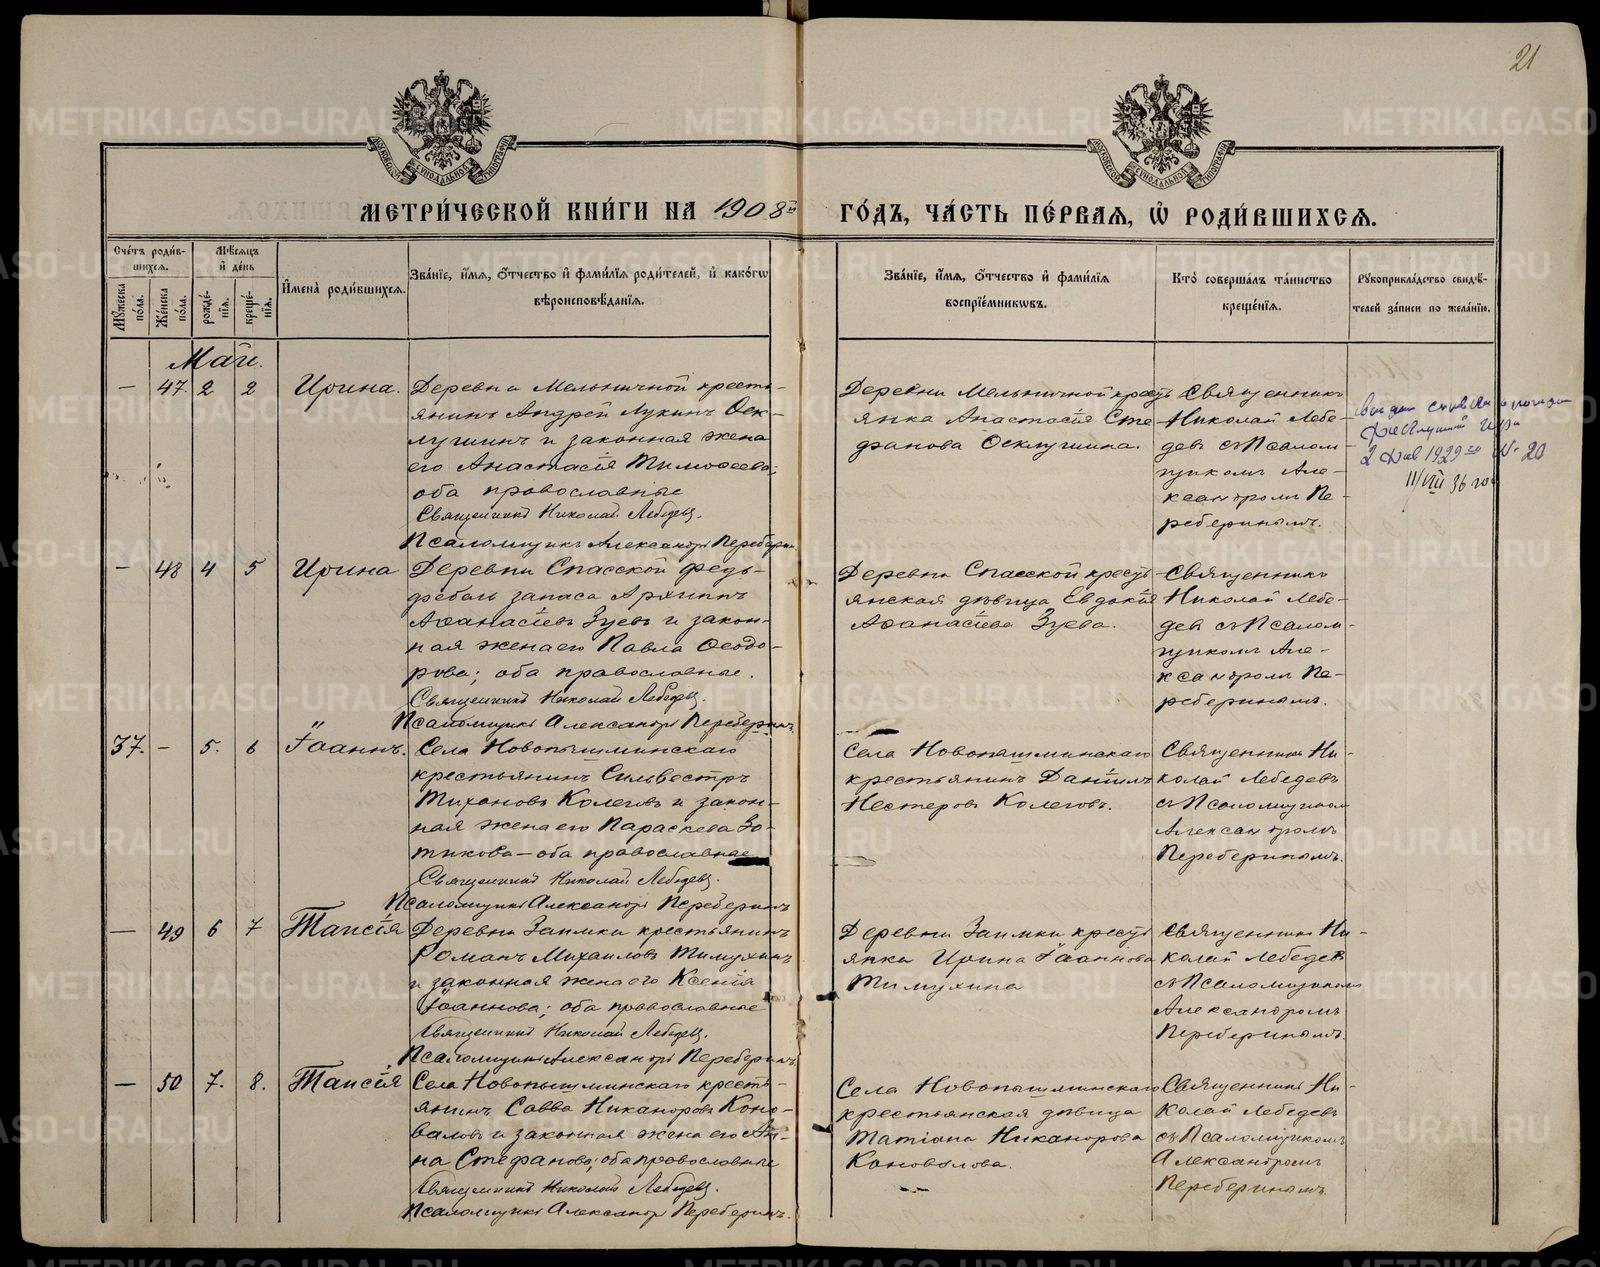 21
МЕТРИ́ЧЕСКОЙ КНИ́ГИ НА 1908й ГО́ДЪ, ЧА́СТЬ ПЕ́РВАѦ, Ѡ҆ РОДИ́ВШИХСѦ.
Сче́тъ роди́вшихсѧ.
Мꙋ́жеска по́ла.
Же́нска по́ла.
Мѣ́сѧцъ и҆ де́нь
рожде́нїѧ.
креще́нїѧ.
И҆мена̀ роди́вшихсѧ.
Зва́нїе, и҆́мѧ, ѻ҆́тчество и҆ фами́лїѧ роди́телей, и҆ како́гѡ
вѣроисповѣ́данїѧ.
Зва́нїе, и҆́мѧ, ѻ҆́тчество и҆ фами́лїѧ
воспрїе́мникѡвъ.
Кто̀ соверша́лъ та́инство
креще́нїѧ.
Рꙋкоприкла́дство свидѣ́-
телей за́писи по жела́нїю.
Май.
— 47. 2 2 Ирина.
Деревни Мельничной кресть-
янинъ Андрей Лукинъ Ѳек-
лушинъ и законная жена
его Анастасія Тимоѳеева;
оба православные
Священникъ Николай Лебедевъ.
Псаломщикъ Александръ Переберинъ
Деревни Мельничной кресть-
янка Анастасія Сте-
фанова Ѳеклушина.
Священникъ
Николай Лебе-
девъ съ Псалом-
щикомъ Але-
ксандромъ Пе-
реберинымъ.
2 1929 № 20
11/VIII 36 го
— 48 4 5 Ирина
Деревни Спасской фельд-
фебель запаса Архипъ
Аѳанасіевъ Зуевъ и закон-
ная жена его Павла Ѳеодо-
рова; оба православные.
Священникъ Николай Лебедевъ.
Псаломщикъ Александръ Переберинъ.
Деревни Спасской кресть-
янская дѣвица Евдокія
Аѳанасіева Зуева.
Священникъ
Николай Лебе-
девъ съ Псалом-
щикомъ Але-
ксандромъ Пе-
реберинымъ.
37. — 5. 6 Іоаннъ.
Села Новопышминскаго
крестьянинъ Сильвестръ
Тихоновъ Колеговъ и закон-
ная жена его Параскева Зо-
тикова — оба православные
Священникъ Николай Лебедевъ.
Псаломщикъ Александръ Переберинъ
Села Новопышминскаго
крестьянинъ Даніилъ
Нестеровъ Колеговъ.
Священникъ Ни-
колай Лебедевъ
съ Псаломщикомъ
Александромъ
Переберинымъ.
— 49 6 7 Таисія
Деревни Заимки крестьянинъ
Романъ Михаиловъ Тимухинъ
и законная жена его Ксенія
Іоаннова; оба православные
Священникъ Николай Лебедевъ.
Псаломщикъ Александръ Переберинъ.
Деревни Заимки кресть-
янка Ирина Іоаннова
Тимухина
Священникъ Ни-
колай Лебедевъ
съ Псаломщикомъ
Александромъ
Переберинымъ.
— 50 7. 8. Таисія
Села Новопышминскаго кресть-
янинъ Савва Никаноровъ Коно-
валовъ и законная жена его Ан-
на Стефанова; оба православные
Священникъ Николай Лебедевъ.
Псаломщикъ Александръ Переберинъ.
Села Новопышминскаго
крестьянская дѣвица
Татіана Никанорова
Коновалова.
Священникъ Ни-
колай Лебедевъ
съ Псаломщикомъ
Александромъ
Переберинымъ.
METRIKI.GASO-URAL.RU